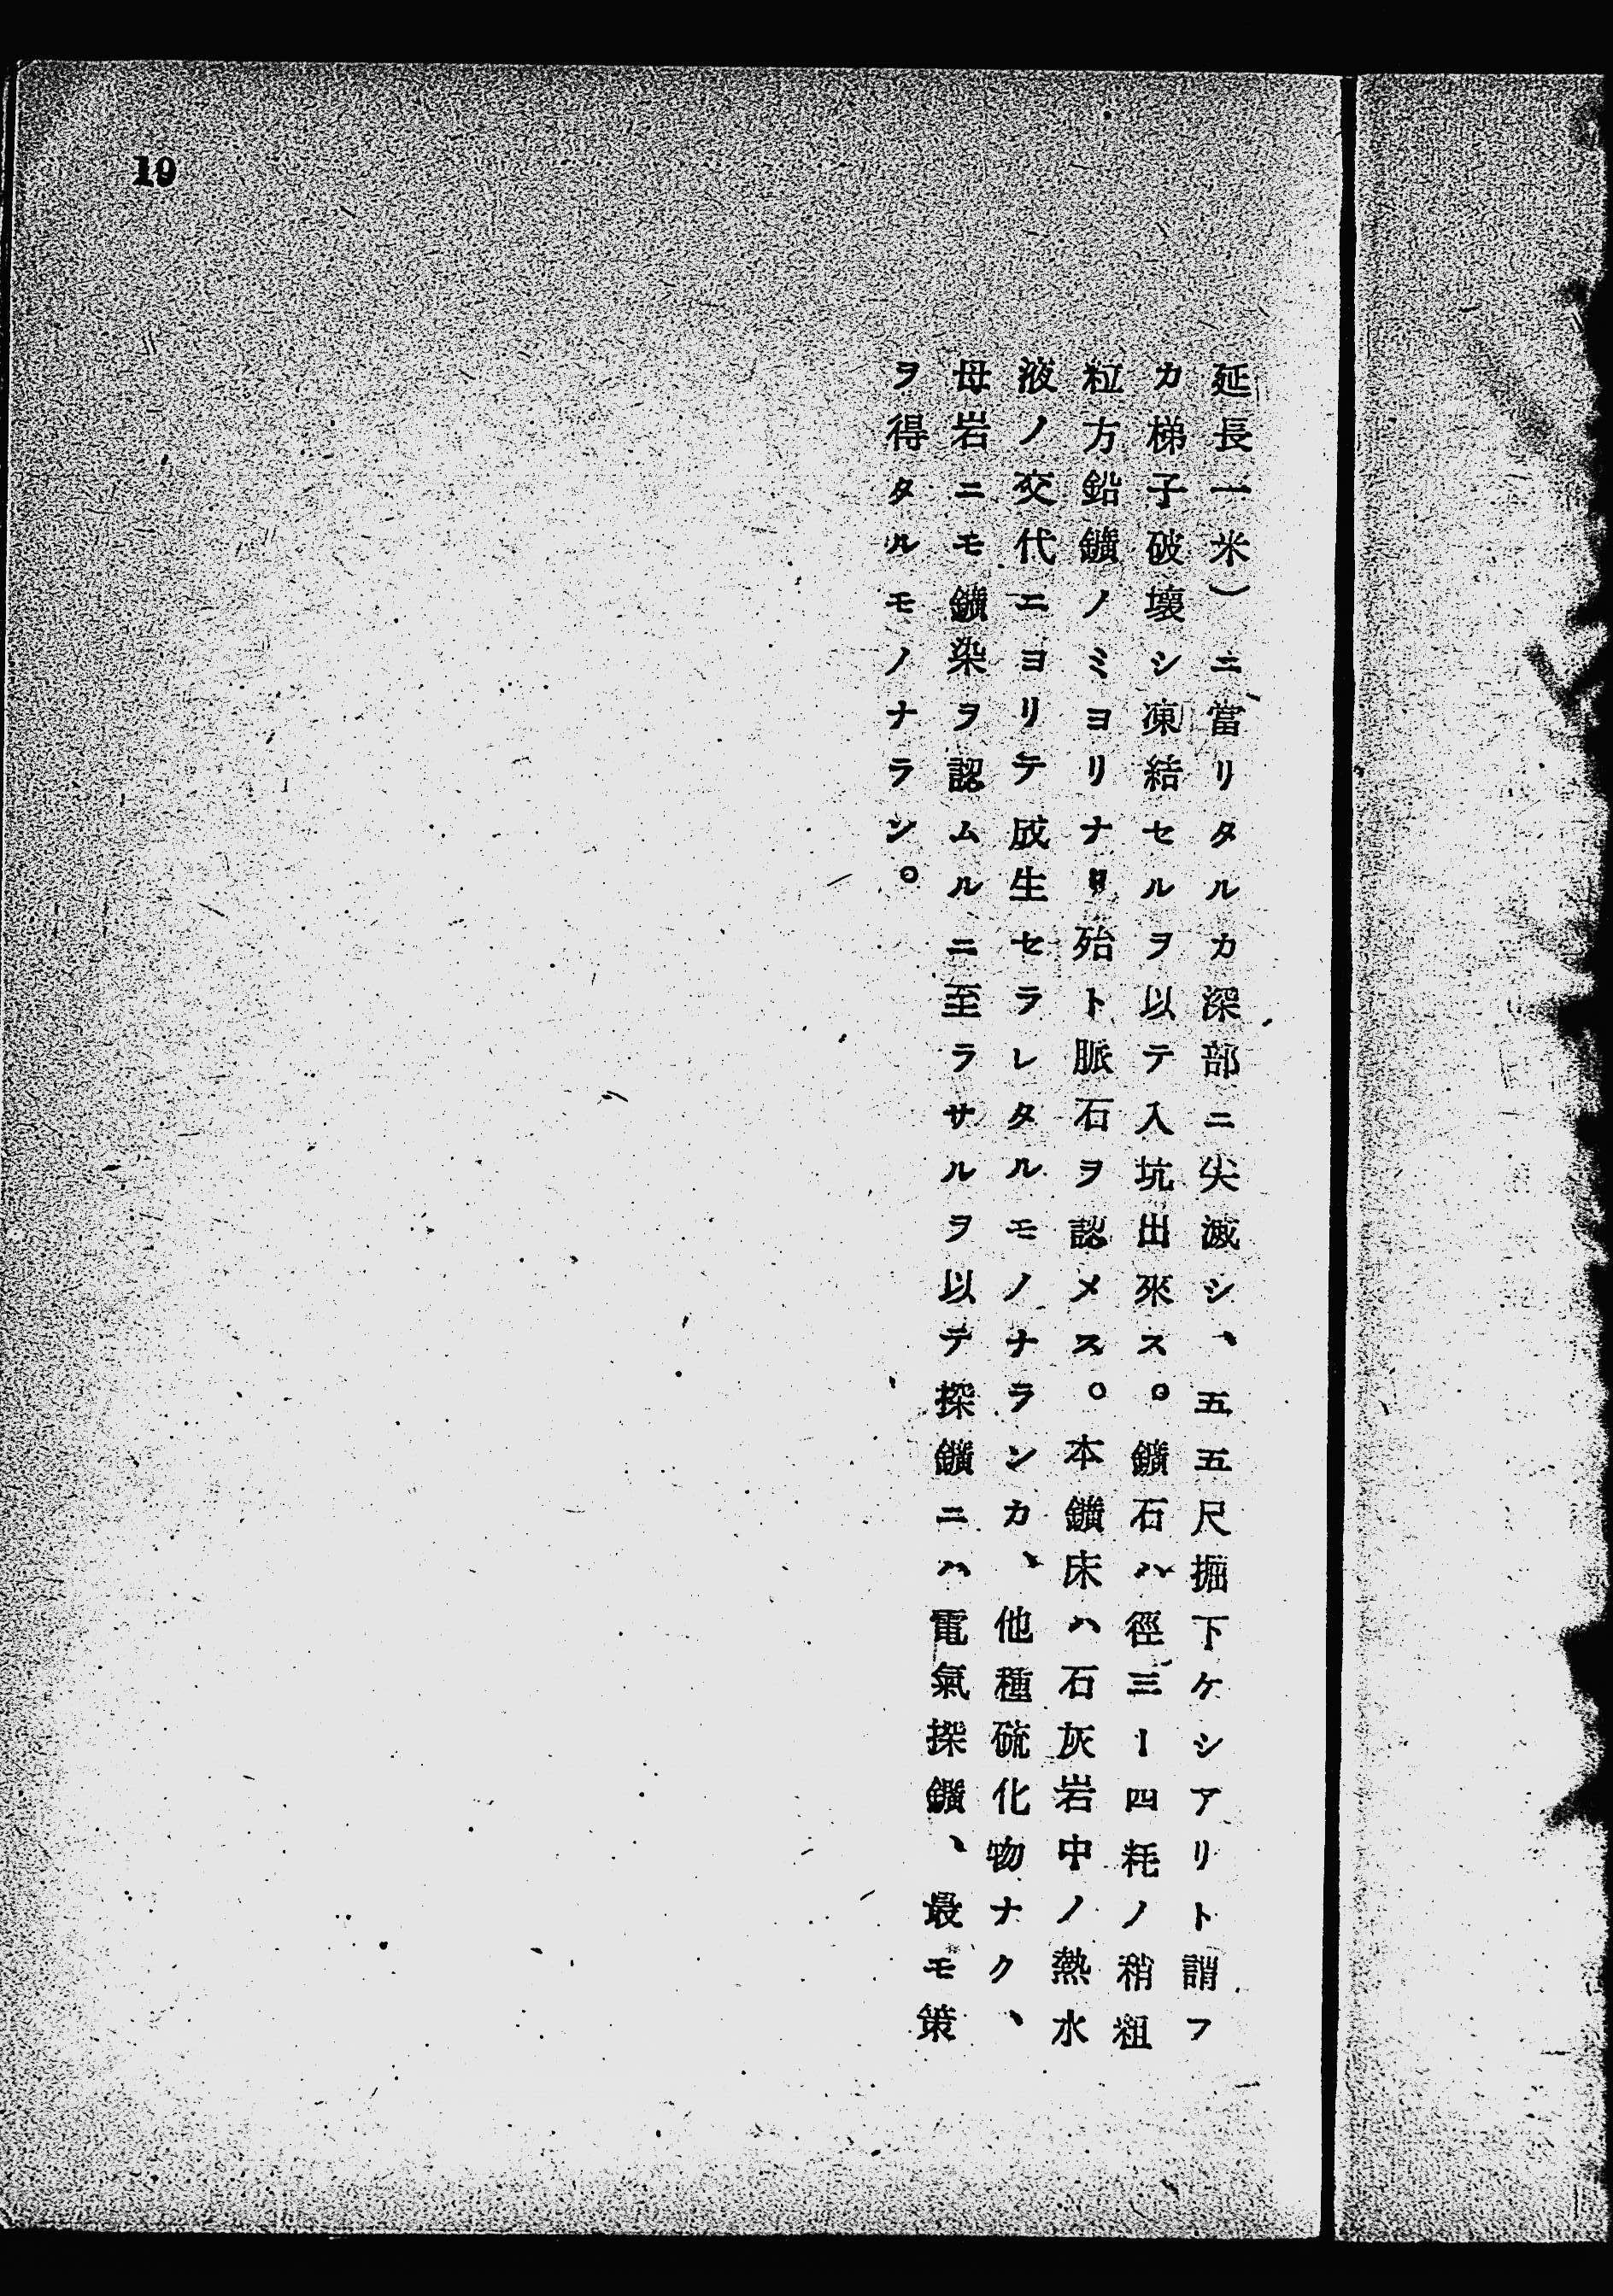 19
延長一米）ニ當リタルカ深部ニ尖滅シ、五五尺掘下ケシアリト謂フ
カ梯子破壞シ凍結セルヲ以テ入坑出來ス。鑛石ハ徑三ー四粍ノ稍粗
粒方鉛鑛ノミヨリナリ殆ト脈石ヲ認メス。本鑛床ハ石灰岩中ノ熱水
液ノ交代ニヨリテ成生セラレタルモノナランカ、他種硫化物ナク、
母岩ニモ鑛染ヲ認ムルニ至ラサルヲ以テ探鑛ニハ電氣探鑛、最モ策
ヲ得タルモノナラン。